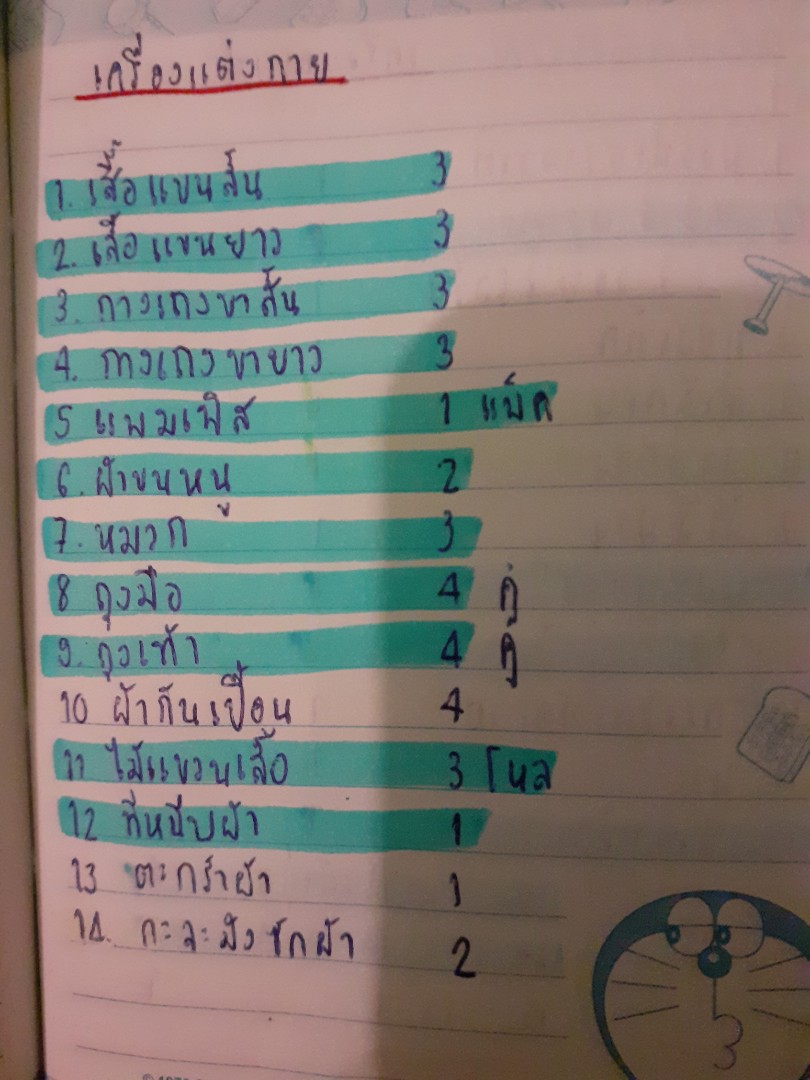 เครื่องแต่งกาย
1. เสื้อแขนสั้น 3
2. เสื้อแขนยาว 3
3. กางเกงขาสั้น 3
4. กางเกงขายาว 3
5 แพมเพิส 1 แพ็ค
6. ผ้าขนหนู 2
7. หมวก 3
8 ถุงมือ 4 คู่
9. ถุงเท้า 4 คู่
10 ผ้ากันเปื้อน 4
11 ไม้แขวนเสื้อ 3 โหล
12 ที่หนีบผ้า 1
13 ตะกร้าผ้า 1
14. กะละมังซักผ้า 2